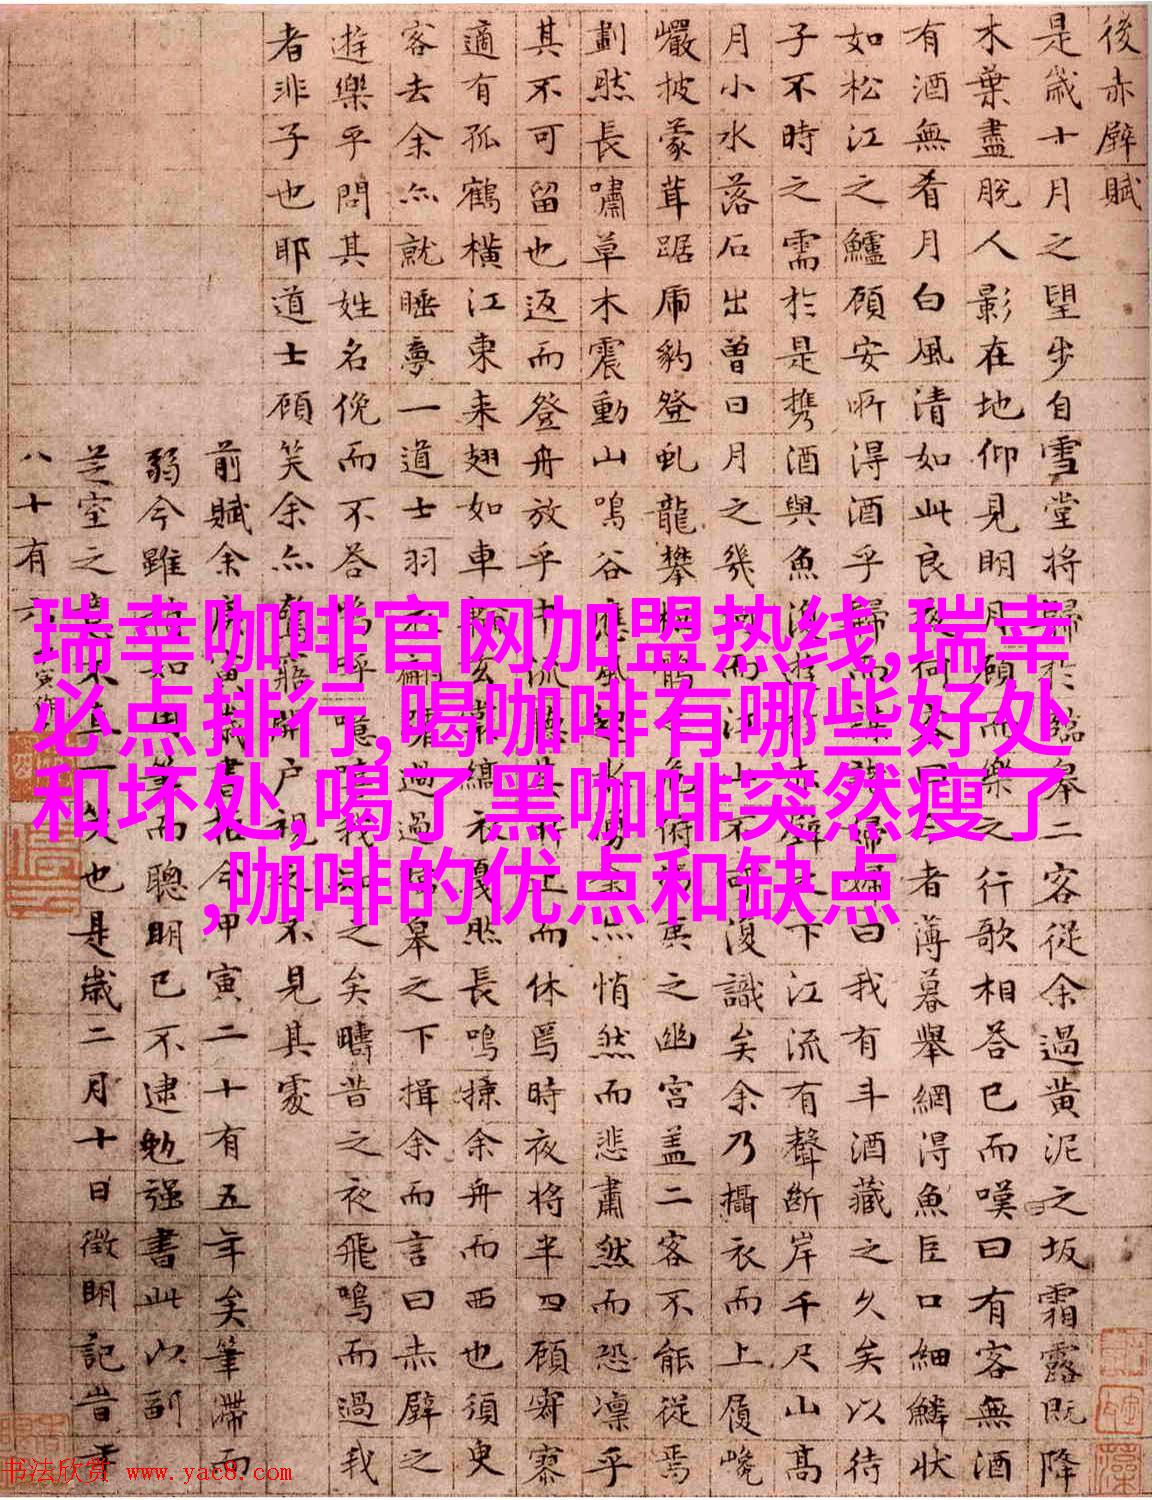 後赤壁賦
是歲十月之望步自雪堂將歸於臨皋二客從余過黃泥之坂霜露既降
木葉盡脫人影在地仰見明月顧而樂之行歌相答已而嘆曰有客無酒
有酒無肴月白風清如此良夜何客曰今者薄暮舉網得魚巨口細鱗狀
如松江之鱸顧安所得酒乎歸而謀諸婦婦曰我有斗酒藏之久矣以待
子不時之需於是攜酒與魚復游於赤壁之下江流有聲斷岸千尺山高
月小水落石出曾日月之幾何而江山不可復識矣余乃攝衣而上履巉
巖披蒙茸踞虎豹登虬龍攀栖鶻之危俯馮夷之幽宮蓋二客不能從焉
劃然長嘯草木震動山鳴谷應風起水湧余亦悄然而悲肅然而恐凜乎
其不可留也返而登舟放乎中流聽其所止而休焉時夜將半四顧寂寥
適有孤鶴橫江東來翅如車輪玄裳縞衣戛然長鳴掠余舟而西也須臾
客去余亦就睡夢一道士羽衣翩躚過臨皋之下揖余而言曰赤壁之
遊樂乎問其姓名俛而不答嗚呼噫嘻我知之矣疇昔之夜飛鳴而過我
者非子也耶道士顧笑余亦驚寤開戶視之不見其處
前賦余庚寅歲書抵今甲寅二十有五年矣筆滯而
弱今雖而聰明已不逮勉強書此以副
芝室之意也是歲二月十日徵明記
八十有六
瑞幸咖啡官网加盟热线,瑞幸
必点排行,喝咖啡有哪些好处
和坏处,喝了黑咖啡突然瘦了
,咖啡的优点和缺点
书法欣赏 www.yac8.com